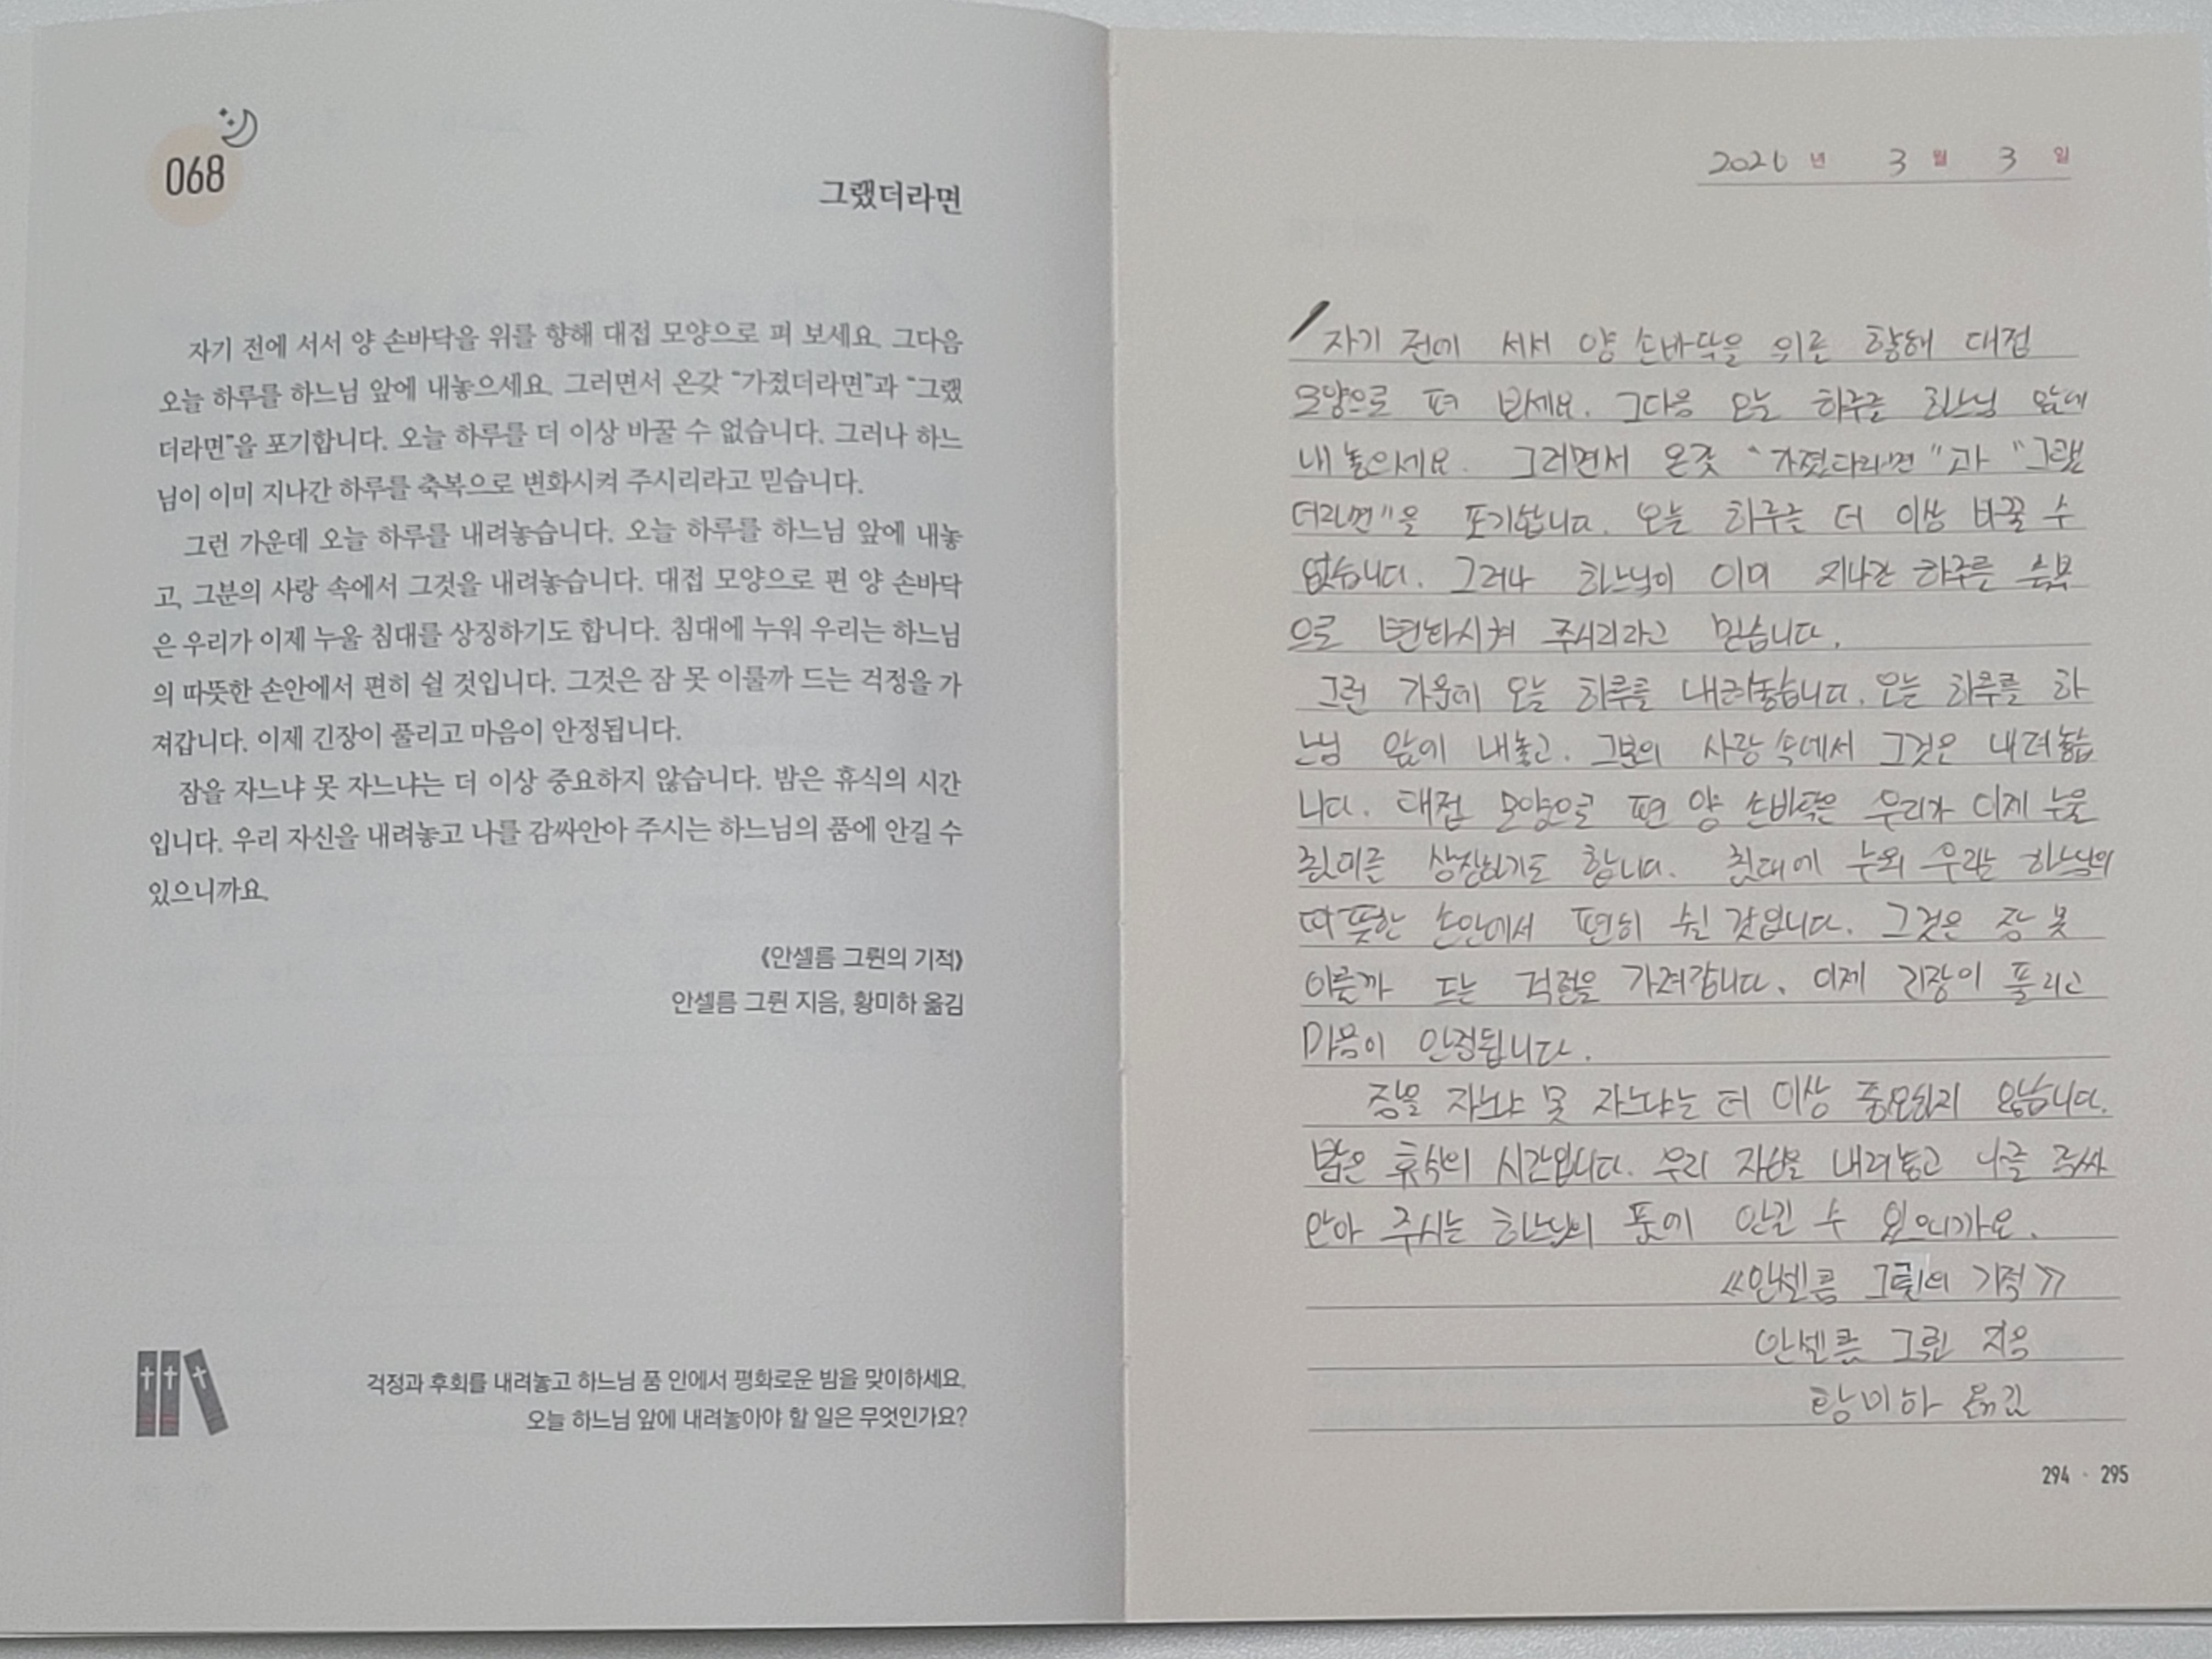 068
그랬더라면
자기 전에 서서 양 손바닥을 위를 향해 대접 모양으로 펴 보세요. 그다음
오늘 하루를 하느님 앞에 내놓으세요. 그러면서 온갖 “가졌더라면”과 “그랬
더라면”을 포기합니다. 오늘 하루를 더 이상 바꿀 수 없습니다. 그러나 하느
님이 이미 지나간 하루를 축복으로 변화시켜 주시리라고 믿습니다.
그런 가운데 오늘 하루를 내려놓습니다. 오늘 하루를 하느님 앞에 내놓
고, 그분의 사랑 속에서 그것을 내려놓습니다. 대접 모양으로 편 양 손바닥
은 우리가 이제 누울 침대를 상징하기도 합니다. 침대에 누워 우리는 하느님
의 따뜻한 손안에서 편히 쉴 것입니다. 그것은 잠 못 이룰까 드는 걱정을 가
져갑니다. 이제 긴장이 풀리고 마음이 안정됩니다.
잠을 자느냐 못 자느냐는 더 이상 중요하지 않습니다. 밤은 휴식의 시간
입니다. 우리 자신을 내려놓고 나를 감싸안아 주시는 하느님의 품에 안길 수
있으니까요.
《안셀름 그륀의 기적》
안셀름 그륀 지음, 황미하 옮김
걱정과 후회를 내려놓고 하느님 품 안에서 평화로운 밤을 맞이하세요.
오늘 하느님 앞에 내려놓아야 할 일은 무엇인가요?
2026 년 3 월 3 일
자기 전에 서서 양 손바닥을 위를 향해 대접
모양으로 펴 보세요. 그다음 오늘 하루를 하느님 앞에
내놓으세요. 그러면서 온갖 "가졌다라면"과 "그랬
더라면"을 포기합니다. 오늘 하루를 더 이상 바꿀 수
없습니다. 그러나 하느님이 이미 지나간 하루를 축복
으로 변화시켜 주시리라고 믿습니다.
그런 가운데 오늘 하루를 내려놓습니다. 오늘 하루를 하
느님 앞에 내놓고. 그분의 사랑 속에서 그것은 내려놓습
니다. 대접 모양으로 편 양 손바닥은 우리가 이제 누울
침대를 상징하기도 합니다. 침대에 누워 우리는 하느님의
따뜻한 손안에서 편히 쉴 것입니다. 그것은 잠 못
이룰까 드는 걱정을 가져갑니다. 이제 긴장이 풀리고
마음이 안정됩니다.
잠을 자느냐 못 자느냐는 더 이상 중요하지 않습니다.
밤은 휴식의 시간입니다. 우리 자신을 내려놓고 나를 감싸
안아 주시는 하느님의 품에 안길 수 있으니까요.
《안셀름 그륀의 기적》
안셀름 그륀 지음
황미하 옮김
294 · 295